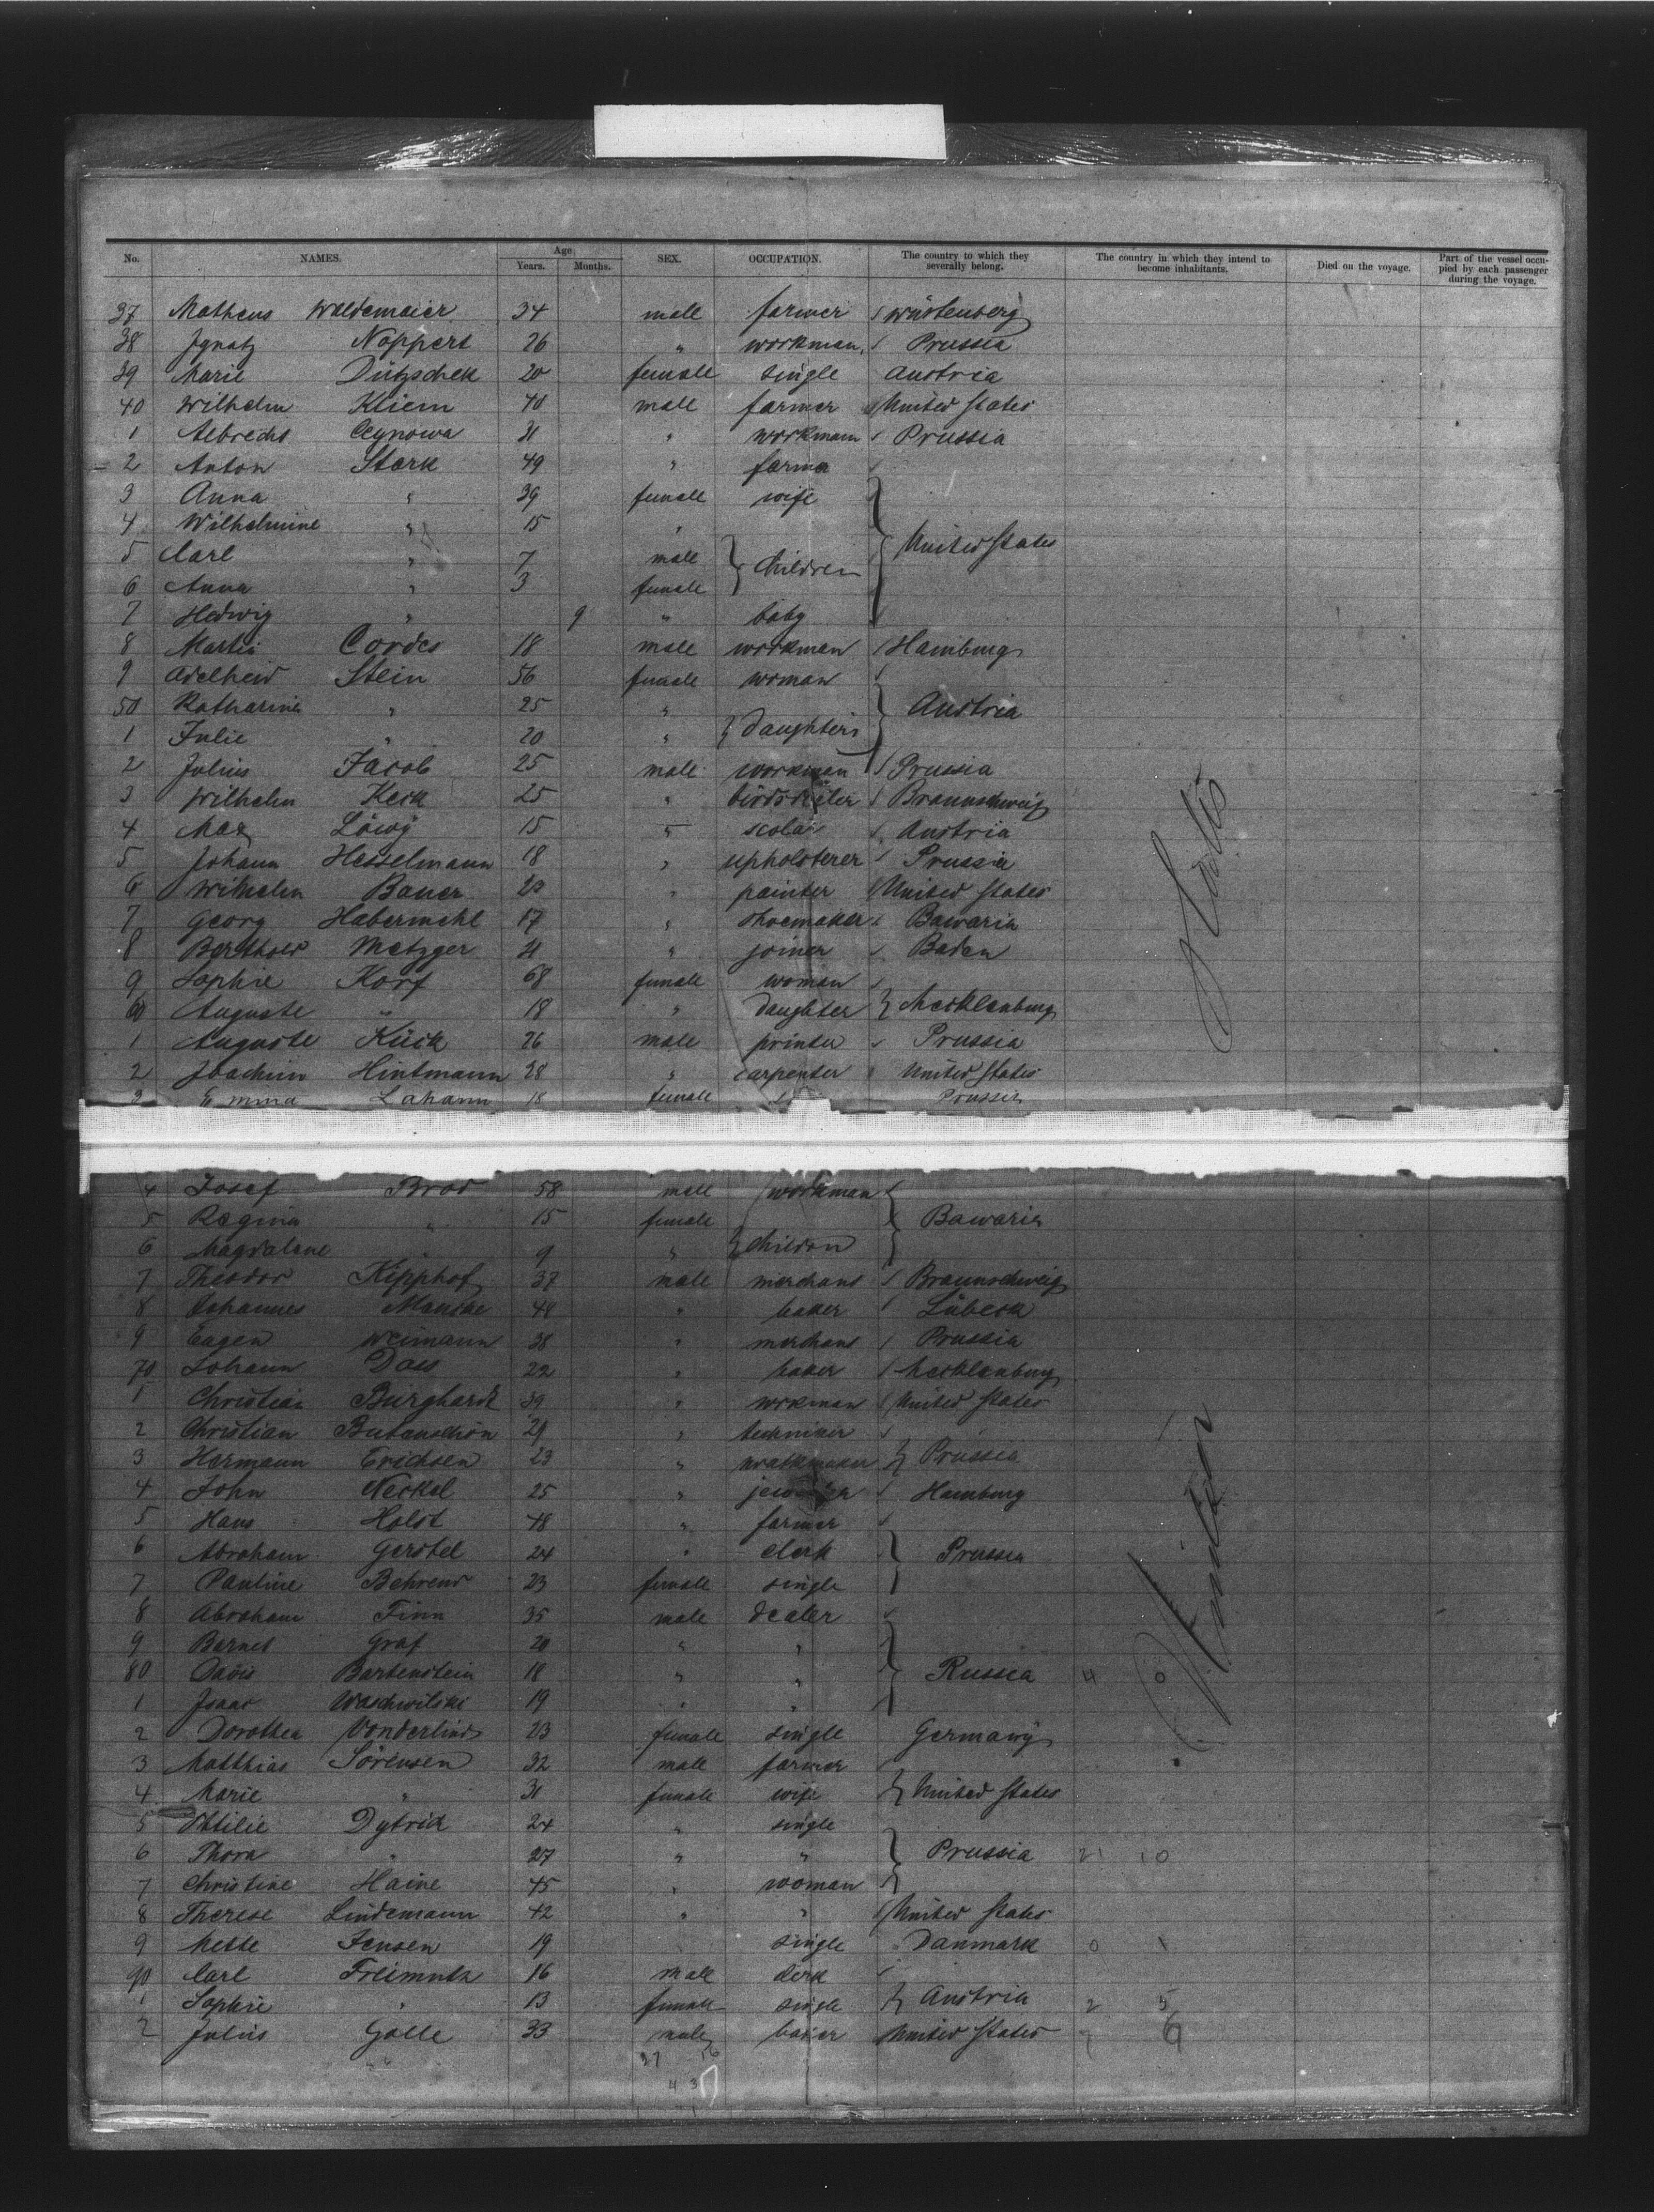 No. NAMES. Age Years. Months. SEX. OCCUPATION. The country to which they severally belong. The country in which they intend to become inhabitants. Died on the voyage. Part of the vessel occupied by each passenger during the voyage.
37 Matheus Waldemaier 34 male farmer Würtenberg
38 Ignatz Noppert 26 " workman Prussia
39 Marie Dützschek 20 female single Austria
40 Wilhelm Kliem 40 male farmer United States
1 Albrecht Ceynowa 31 " workmann Prussia
2 Anton Stark 49 " farmer
3 Anna " 39 female wife
4 Wilhelmine " 15 "
5 Carl " 7 male children United States
6 Anna " 3 female
7 Hedwig " 9 " baby
8 Martin Cordes 18 male workman Hamburg
9 Adelheid Stein 56 female woman
50 Katharine " 25 " Austria
1 Julie " 20 " daughters
2 Julius Jacob 25 male workman Prussia
3 Wilhelm Keck 25 " Braunschweig
4 Max Löwy 15 " scolar Austria
5 Johann Hesselmann 18 " upholsterer Prussia
6 Wilhelm Bauer 20 " painter United States
7 Georg Habermehl 17 " shoemaker Bawaria
8 Berthold Metzger 21 " joiner Baden
9 Sophie Korf 68 female woman
60 Auguste " 18 " daughter Mecklenburg
1 Auguste Kück 26 male printer Prussia
2 Joachim Hintmann 28 " carpenter United States
3 Emma Lahann 18 female Prussia
4 Josef Brod 58 male workman
5 Regina " 15 female Bawaria
6 Magdalene " 9 " children
7 Theodor Kipphof 37 male merchant Braunschweig
8 Johannes Manske 48 " baker Lübeck
9 Eugen Weimann 38 " merchant Prussia
70 Johann Dass 22 " baker Mecklenburg
1 Christian Burghardt 39 " workman United States
2 Christian Butenschön 29 " techniker
3 Hermann Erichsen 23 " Prussia
4 John Neckel 25 " Hamburg
5 Hans Holst 48 " farmer
6 Abraham Gerstel 24 " clerk Prussia
7 Pauline Behrend 23 female single
8 Abraham Finn 35 male dealer
9 Barnet Graf 20 " "
80 David Bartenstein 18 " " Russia 4 0
1 Isaac Waschwilski 19 " "
2 Dorothea Vonderlind 23 female single Germany
3 Matthias Sörensen 32 male farmer
4 Marie " 31 female wife United States
5 Ottilie Dytrich 24 " single
6 Thora " 27 " " Prussia 21 10
7 Christine Haine 45 " woman
8 Therese Lindemann 42 " " United States
9 Mette Jensen 19 single Danmark 0 1
90 Carl Freimuth 16 male clerk
1 Sophie " 13 female single Austria 2 5
2 Julius Galle 33 male baker United States 7 6
37 16
43